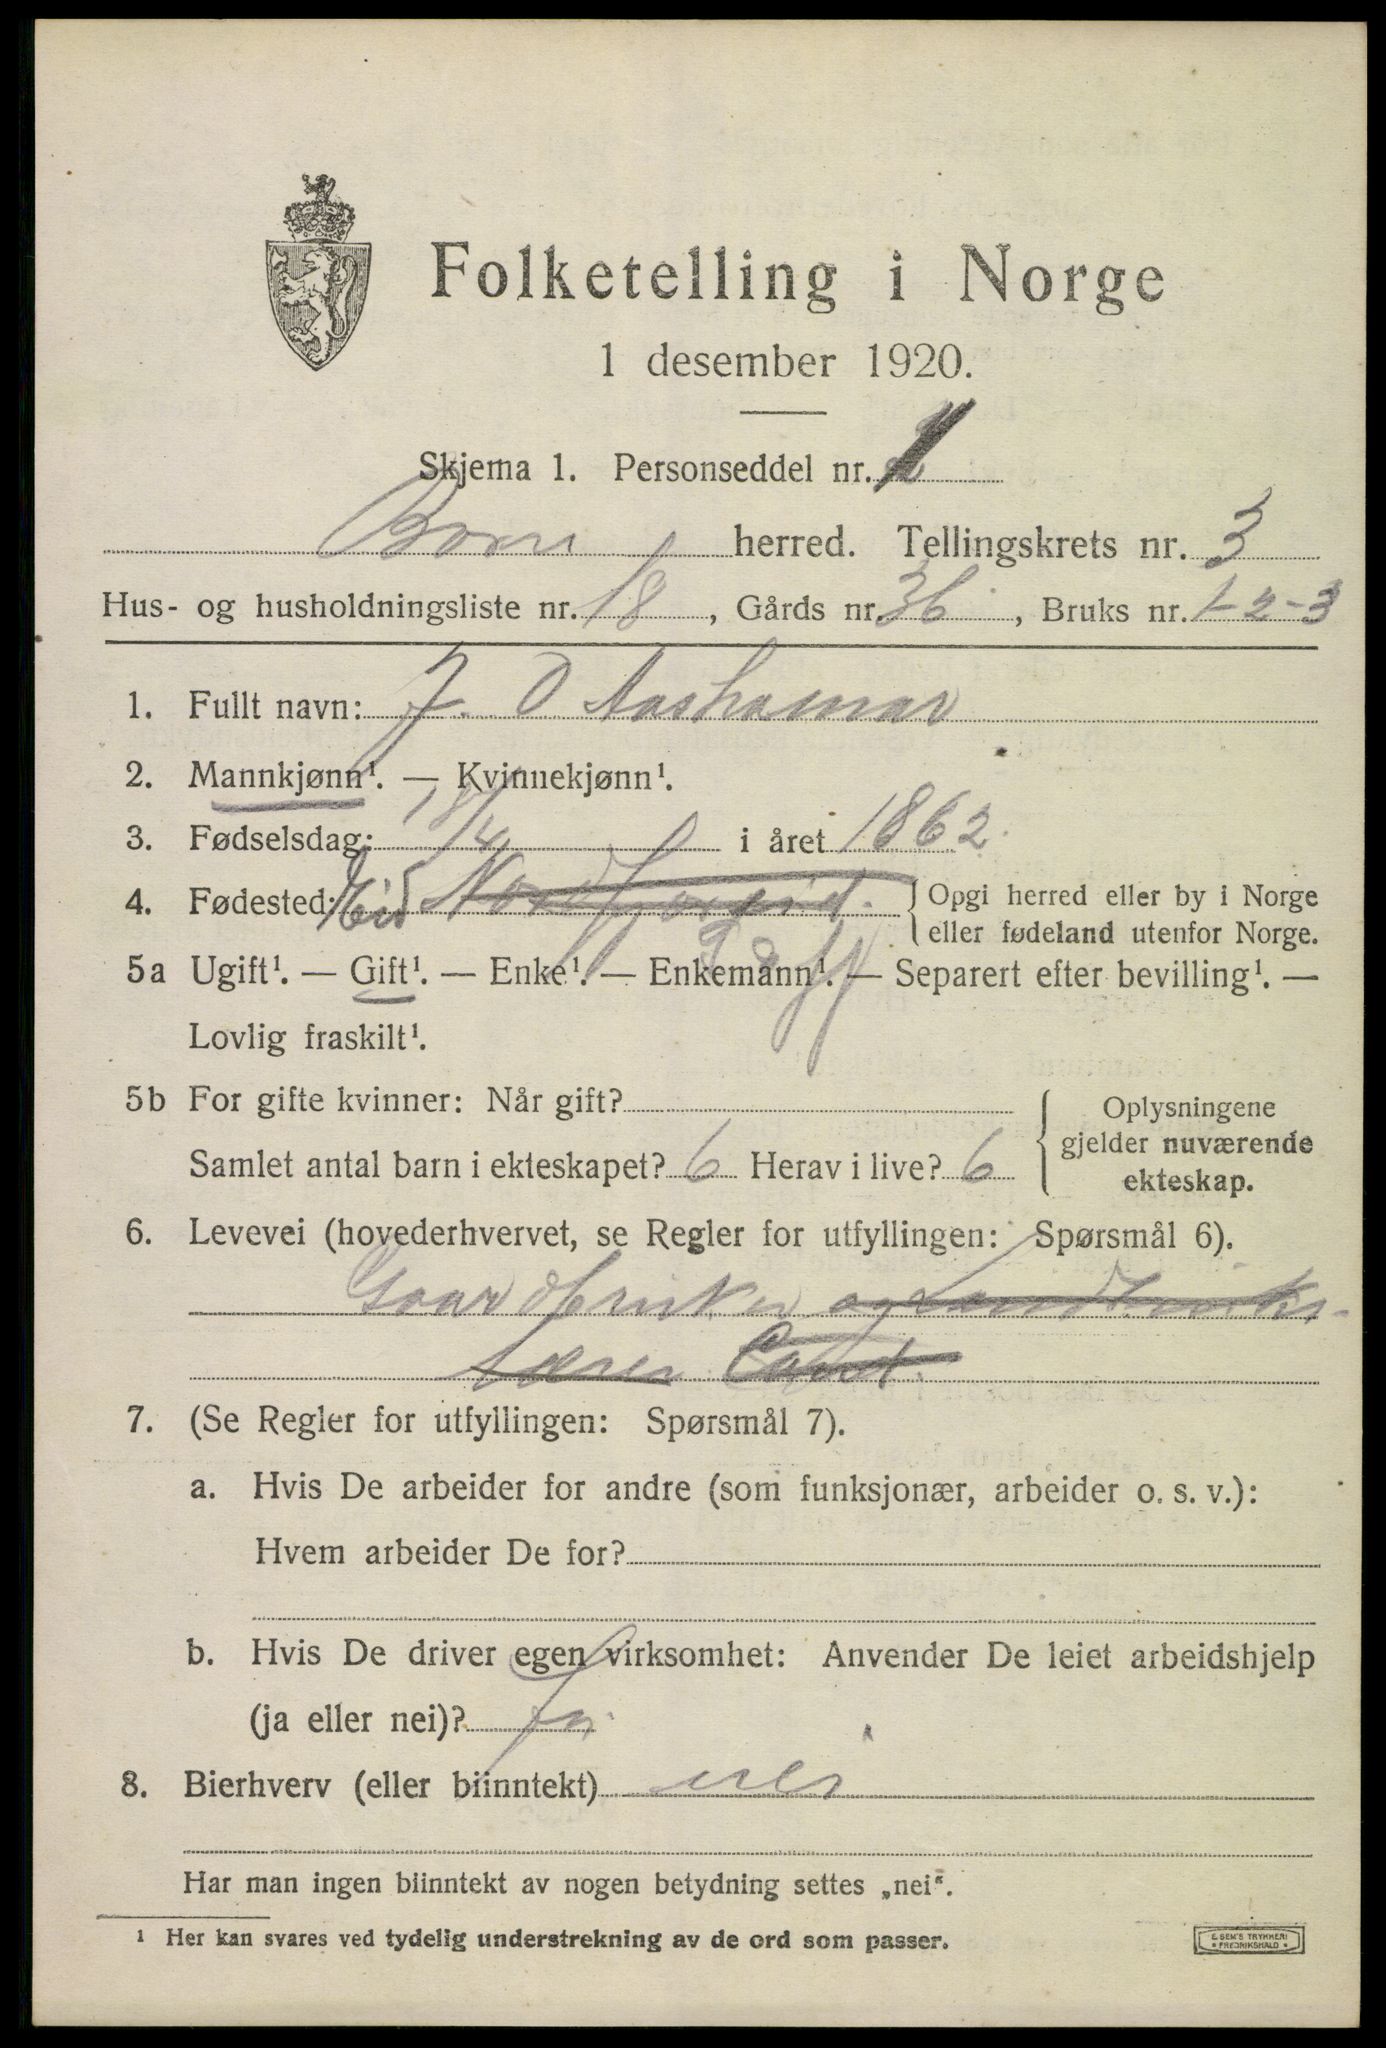 Folketelling i Norge
1 desember 1920.
Skjema 1. Personseddel nr. 1
herred. Tellingskrets nr. 3
Hus- og husholdningsliste nr. 18, Gårds nr. 36, Bruks nr. 1-2-3
1. Fullt navn: J. O Aashamar
2. Mannkjønn¹. — Kvinnekjønn¹.
3. Fødselsdag: 18/4 i året 1862
4. Fødested: Eid Nordfjoreid. Opgi herred eller by i Norge
eller fødeland utenfor Norge.
5a Ugift¹. — Gift¹. — Enke¹. — Enkemann¹. — Separert efter bevilling¹. —
Lovlig fraskilt¹.
5b For gifte kvinner: Når gift?
Samlet antal barn i ekteskapet? 6 Herav i live? 6
Oplysningene
gjelder nuværende
ekteskap.
6. Levevei (hovederhvervet, se Regler for utfyllingen: Spørsmål 6).
Gaardbruker og Landbruks-
lærer Cand.
7. (Se Regler for utfyllingen: Spørsmål 7).
a. Hvis De arbeider for andre (som funksjonær, arbeider o. s. v.):
Hvem arbeider De for?
b. Hvis De driver egen virksomhet: Anvender De leiet arbeidshjelp
(ja eller nei)? Ja.
8. Bierhverv (eller biinntekt) nei
Har man ingen biinntekt av nogen betydning settes „nei“.
¹ Her kan svares ved tydelig understrekning av de ord som passer.
E. SEM'S TRYKKERI
• FREDRIKSHALD •